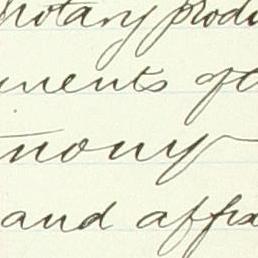 notary produ
ments of t
mony
and affix